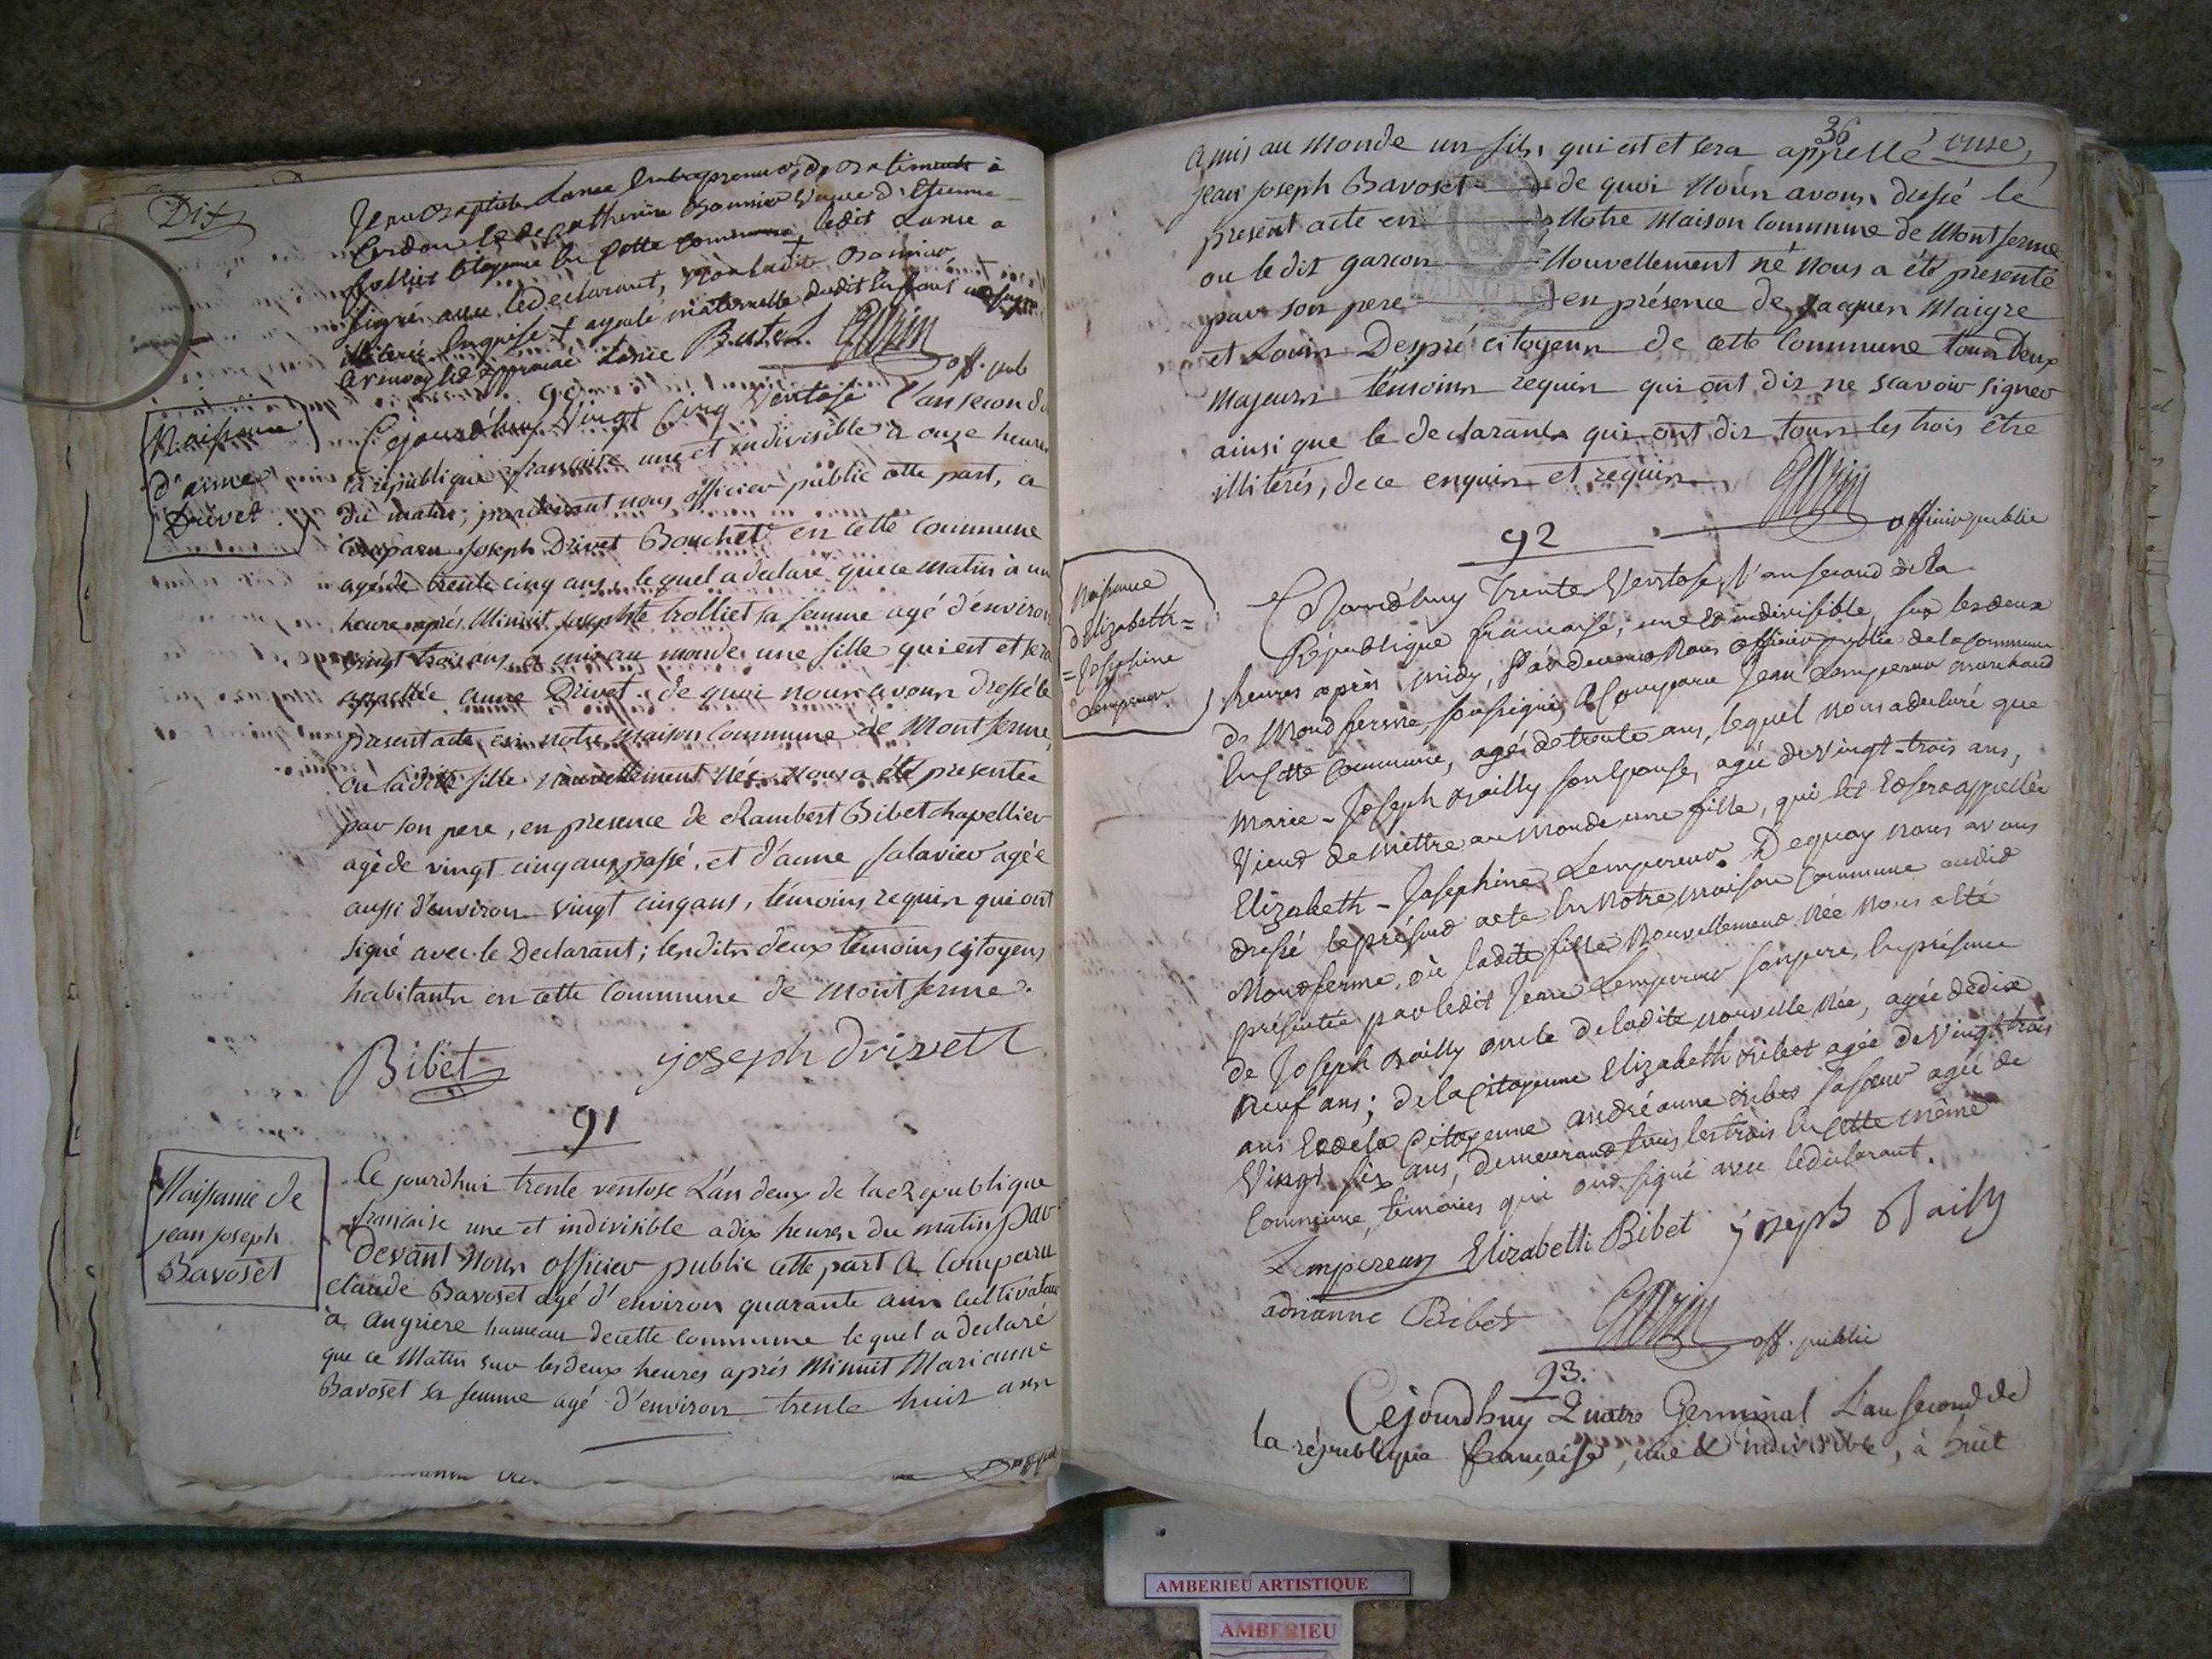 Dix
Jean Baptiste Lance Entrepreneur de Batiments à
et de Catherine Bonnier veuve d'Etienne
Trolliet Citoyenne En cette commune, ledit Lance a
signé avec le declarant, non ladite Bonnier,
illiterée Enquise + ayeule maternelle dudit Enfant
approuvé Lance Butel Guérin
off. pub
90
Naissance
d'anne
Drivet
Cejourd'huy Vingt Cinq Ventose l'an second de
la république francaise une et indivisible à onze heures
du matin, pardevant nous officier public cette part, a
comparu Joseph Drivet Boucher en cette Commune
agé de trente cinq ans, lequel a declaré que ce matin à un
heure après Minuit Josephte trolliet sa femme agé d'environ
vingt trois ans a mis au monde une fille qui est et sera
appellée anne Drivet. de quoi nour avonr dressé le
present acte en notre maison Commune de Montferme,
ou ladite fille nouvellement née nous a été presentée
par son pere, en presence de Rambert Bibet chapellier
agé de vingt cinq ans passé, et d'anne Salavier agée
aussi d'environ vingt cinq ans, témoins requir qui ont
signé avec le Declarant; lesdits deux témoins citoyens
habitants en cette Commune de Montferme.
Bibet joseph drivett
91
Naissance de
jean joseph
Bavoset
Ce jourdhui trente ventose L'an deux de la Republique
francaise une et indivisible a dix heures du matin par
Devant Nour officier public cette part A Comparu
claude Bavoset agé d'environ quarante ans Cultivateur
à angriere hameau de cette Commune lequel a declaré
que ce Matin sur les deux heures aprés Minuit Marianne
Bavoset sa femme agé d'environ trente huit ans
36
onze
A mis au Monde un fils, qui est et sera appellé
jean joseph Bavoset de quoi Nour avonr dressé le
present acte en Notre Maison Commune de Montferme
ou le dit garcon Nouvellement né Nous a été presenté
par son pere en présence de Jacquer Maigre
et Louir Despré citoyenr de cette Commune tour Deux
Majeurs témoins requir qui ont dit ne scavoir signer
ainsi que le declarant qui ont dit tour les trois être
illitérés, de ce enquir et requir
MINUTE
Guérin
officier public
92
Naissance
d'Elizabeth=
=Josephine
Lempereur
Cejourd'huy Trente Ventose, l'an second de la
République francaise, une & indivisible, sur les deux
heures après midy, Pardevant Nous officier public de la commune
de Montferme, soussigné, a Comparu Jean Lempereur marchand
En cette Commune, agé de trente ans, lequel nous a declaré que
Marie-Joseph Bailly son Epouse, agée de vingt-trois ans,
Vient de mettre au monde une fille, qui Est Et sera appellée
Elizabeth-Josephine Lempereur. De quoy nous avons
dressé le présent acte En Notre maison Commune audit
Montferme, où ladite fille Nouvellement née Nous a Eté
présentée par ledit Jean Lempereur son pere, En présence
de Joseph Bailly oncle de ladite nouvelle Née, agé de dix
neuf ans; de la Citoyenne Elizabeth Bibet agée de Vingt-trois
ans Et de la Citoyenne andréanne Bibet sa soeur agée de
Vingt six ans, demeurant tous les trois En cette même
Commune, témoins qui ont signé avec le declarant.
Lempereur Elizabeth Bibet joseph Bailly
adrianne Bibet Guérin
off. public
93.
Cejourdhuy Quatre Germinal L'an second de
la république francaise, une & indivisible, à huit
AMBERIEU ARTISTIQUE
AMBERIEU